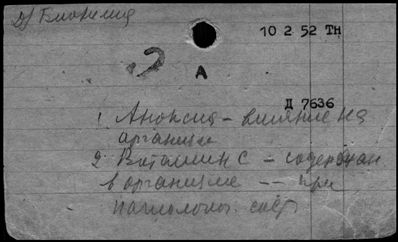 Д/ Биохимия
10 2 52 ТН
А
Д 7636
1 Аноксия – влияние на
организм
2 Витамин С – содержан
в организме -- при
патолог.